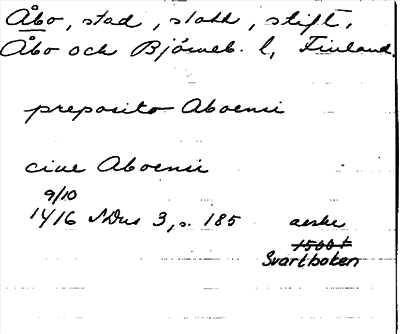 Åbo, stad, slott, stift,
Åbo och Björneb. l, Finland.
preposito Aboensi
cive Aboensi
9/10
1416 SDns 3, s. 185 avskr
1500 t
Svartboken